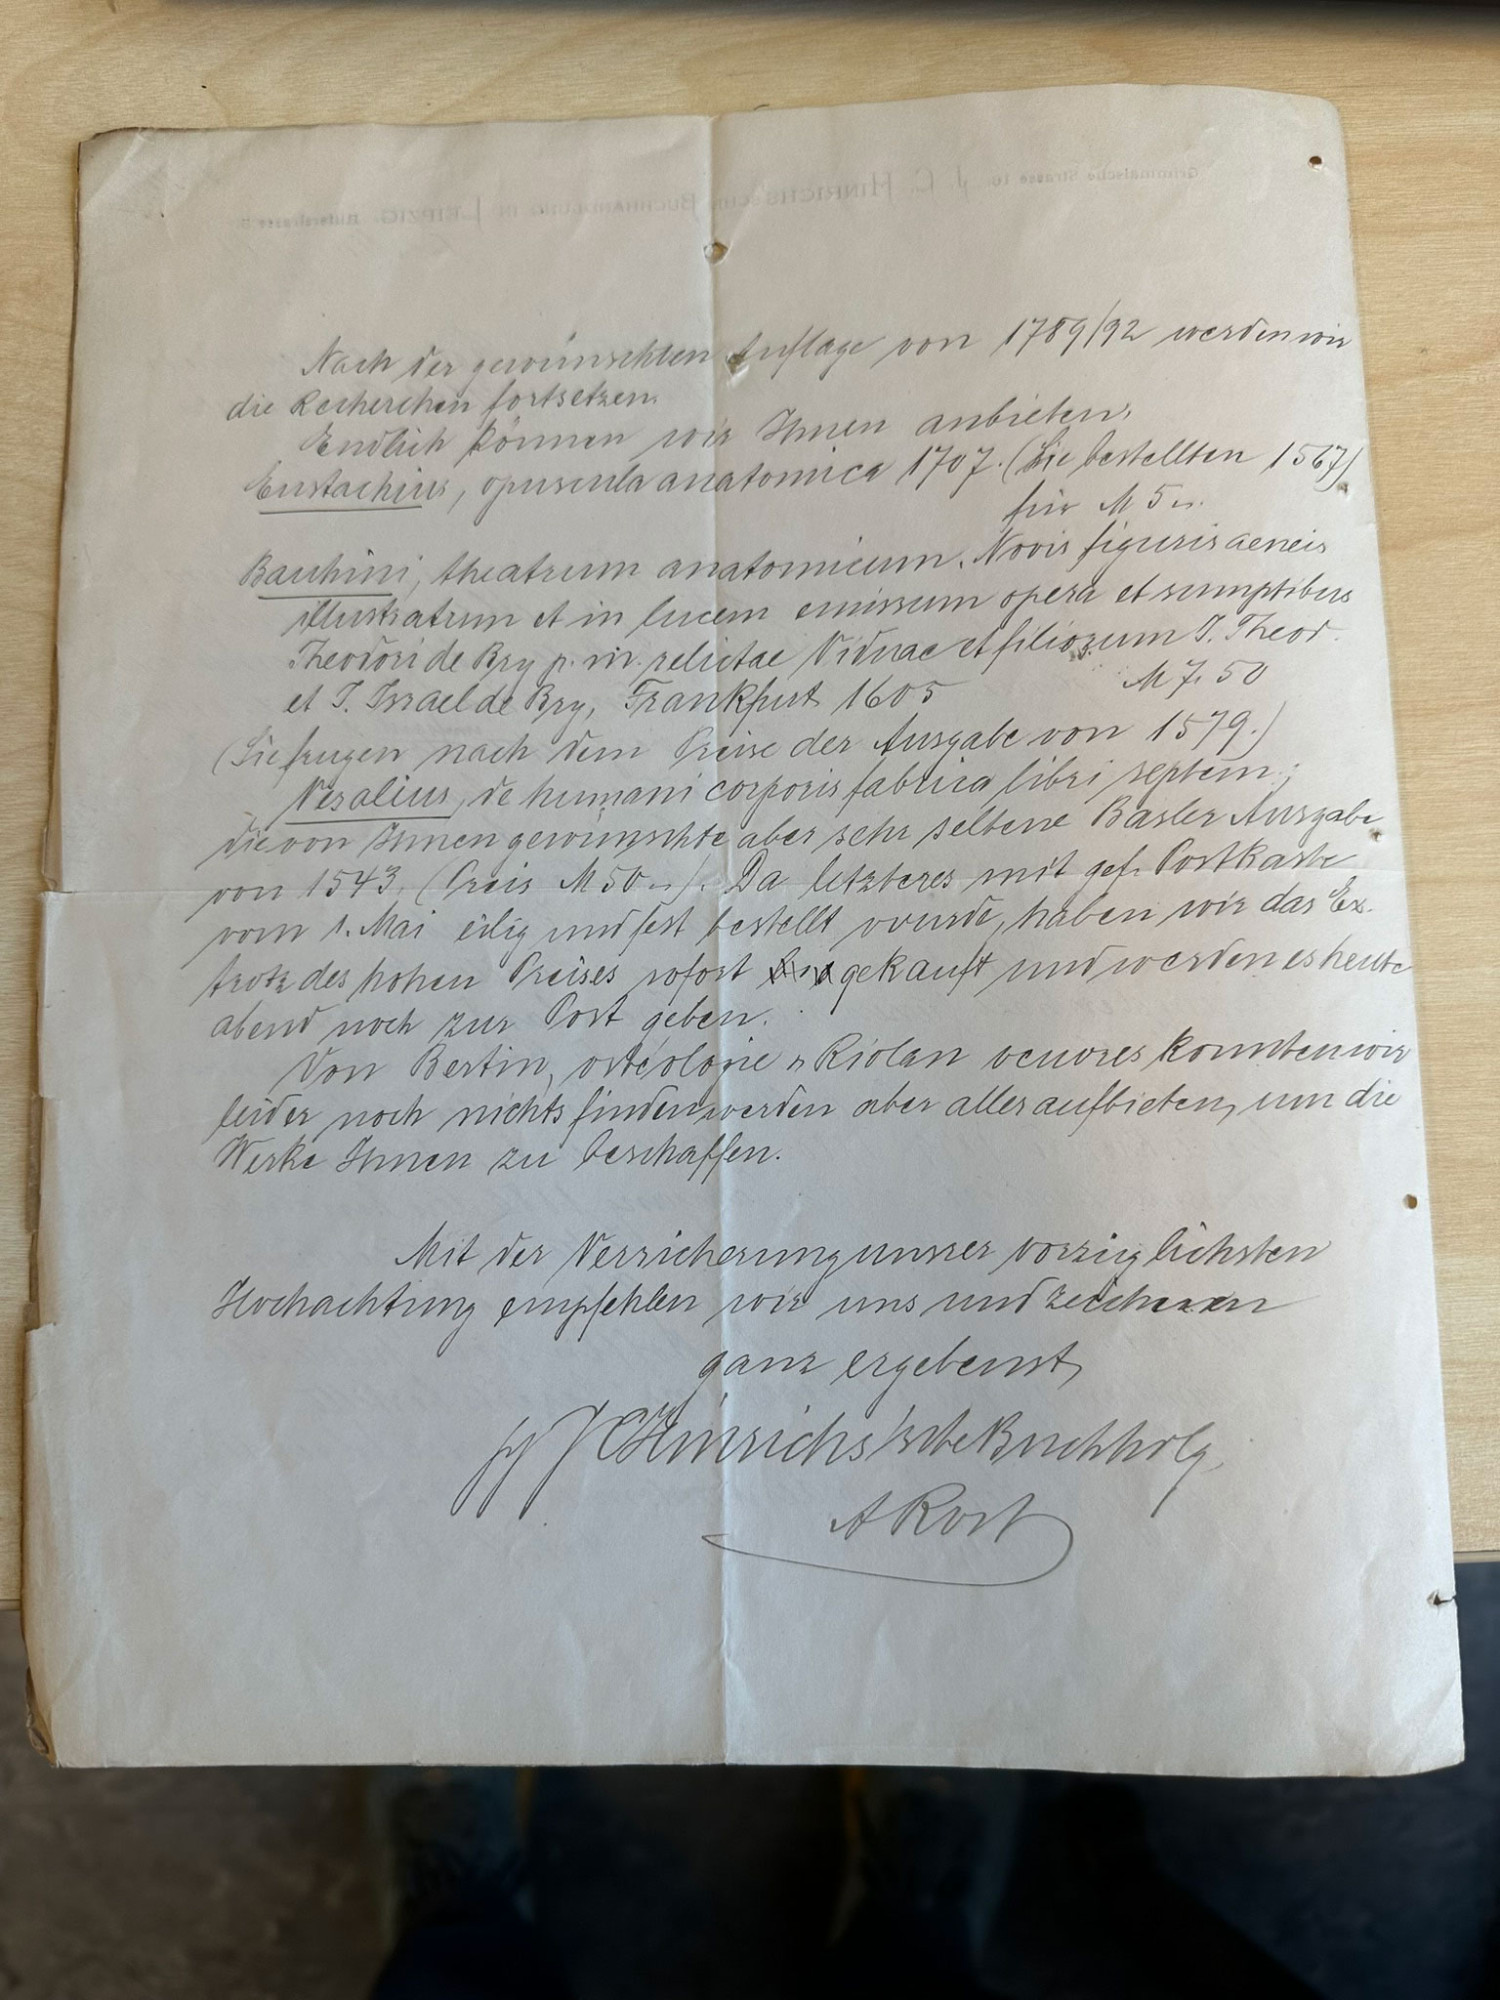 Grimmaische Strasse 16. J. C. HINRICHS'SCHE BUCHHANDLUNG IN LEIPZIG. Ritterstrasse
Nach der gewünschten Auflage von 1789/92 werden wir
die Recherchen fortsetzen.
Endlich können wir Ihnen anbieten:
Eustachius, opuscula anatomica 1707. (Sie bestellten 1567)
für M 5 –.
Bauhini, theatrum anatomicum. Novis figuris aeneis
illustratum et in lucem emissum opera et sumptibus
Theodori de Bry p. m. relictae Viduae et filiorum J. Theod.
et J. Israel de Bry, Frankfurt 1605 M 7.50
(Sie frugen nach dem Preise der Ausgabe von 1579.)
Vesalius, de humani corporis fabrica libri septem;
die von Ihnen gewünschte aber sehr seltene Basler Ausgabe
von 1543. (Preis M 50 –). Da letzteres mit gef. Postkarte
vom 1. Mai eilig und fest bestellt wurde, haben wir das Ex.
trotz des hohen Preises sofort gekauft und werden es heute
abend noch zur Post geben.
Von Bertin, ostéologie u Riolan oeuvres konnten wir
leider noch nichts finden, werden aber alles aufbieten, um die
Werke Ihnen zu beschaffen.
Mit der Versicherung unsrer vorzüglichsten
Hochachtung empfehlen wir uns und zeichnen
ganz ergebenst
J C Hinrichs'sche Buchhdlg.
A Rost